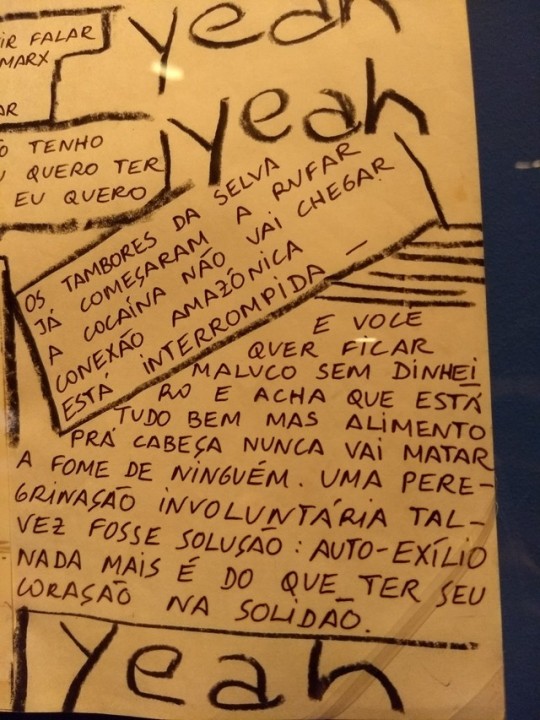 yeah
IR FALAR
MARX
AR
yeah
O TENHO
U QUERO TER
EU QUERO
OS TAMBORES DA SELVA
JÁ COMEÇARAM A RUFAR
A COCAÍNA NÃO VAI CHEGAR
CONEXÃO AMAZÔNICA
ESTÁ INTERROMPIDA —
E VOCÊ
QUER FICAR
MALUCO SEM DINHEI
RO E ACHA QUE ESTÁ
TUDO BEM MAS ALIMENTO
PRÁ CABEÇA NUNCA VAI MATAR
A FOME DE NINGUÉM. UMA PERE-
GRINAÇÃO INVOLUNTÁRIA TAL-
VEZ FOSSE SOLUÇÃO: AUTO-EXÍLIO
NADA MAIS É DO QUE TER SEU
CORAÇÃO NA SOLIDÃO.
yeah